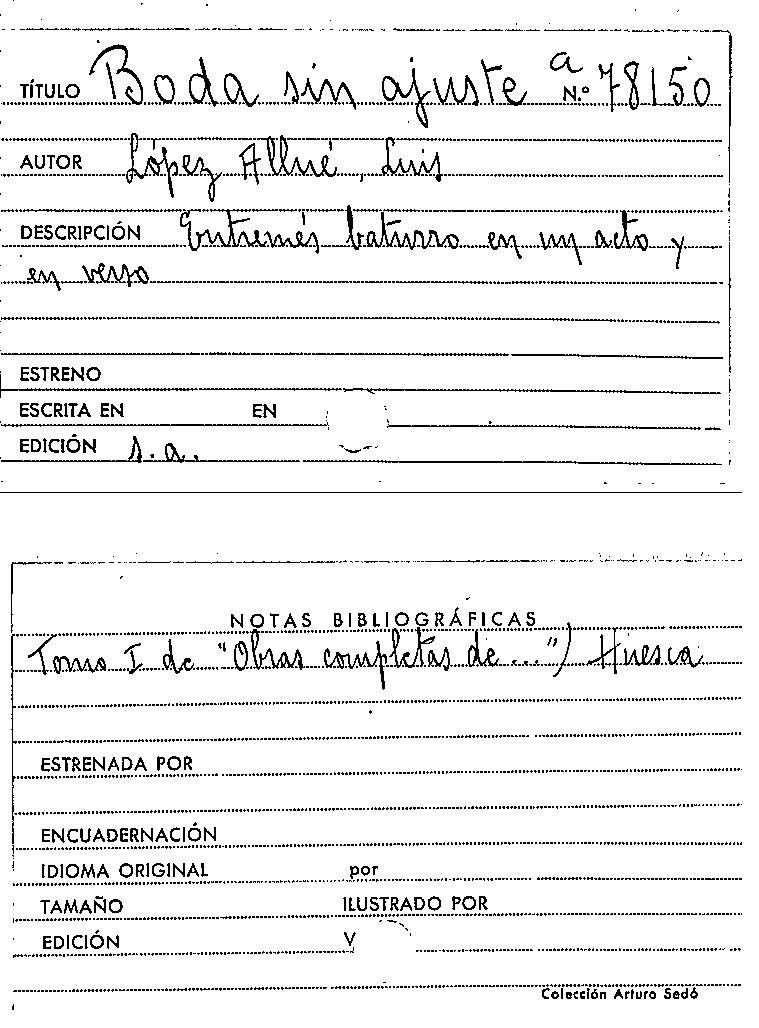 TÍTULO Boda sin ajuste a N.º 78150
AUTOR López Allué, Luis
DESCRIPCIÓN Entremés baturro en un acto y
en verso
ESTRENO
ESCRITA EN EN
EDICIÓN s.a.
NOTAS BIBLIOGRÁFICAS
Tomo I de "Obras completas de..."/ Huesca
ESTRENADA POR
ENCUADERNACIÓN
IDIOMA ORIGINAL por
TAMAÑO ILUSTRADO POR
EDICIÓN V
Colección Arturo Sedó